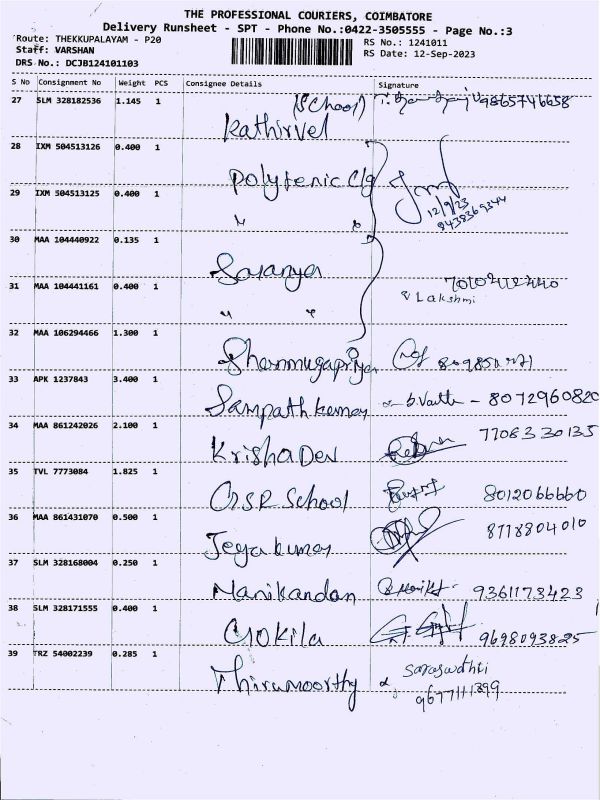 THE PROFESSIONAL COURIERS, COIMBATORE
Delivery Runsheet - SPT - Phone No.:0422-3505555 - Page No.:3
Route: THEKKUPALAYAM - P20
RS No.: 1241011
Staff: VARSHAN
RS Date: 12-Sep-2023
DRS No.: DCJB124101103
S No Consignment No Weight PCS Consignee Details Signature
27 SLM 328182536 1.145 1 (School) 9865746658
Kathirvel
28 IXM 504513126 0.400 1
Polytenic Clg
29 IXM 504513125 0.400 1 12/9/23
" "
30 MAA 104440922 0.135 1
Saranya
31 MAA 104441161 0.400 1
Lakshmi
" "
32 MAA 106294466 1.300 1
Shanmugapriya
33 APK 1237843 3.400 1
Sampath kumar 8072960820
34 MAA 861242026 2.100 1 7708330135
Krisha Dev
35 TVL 7773084 1.825 1
School 8012066660
36 MAA 861431070 0.500 1 8778804010
Jeyakumar
37 SLM 328168004 0.250 1
Manikandan 9361173423
38 SLM 328171555 0.400 1
Gokila 9698093825
39 TRZ 54002239 0.285 1 Saraswathi
Thiramoorthy 9677111399